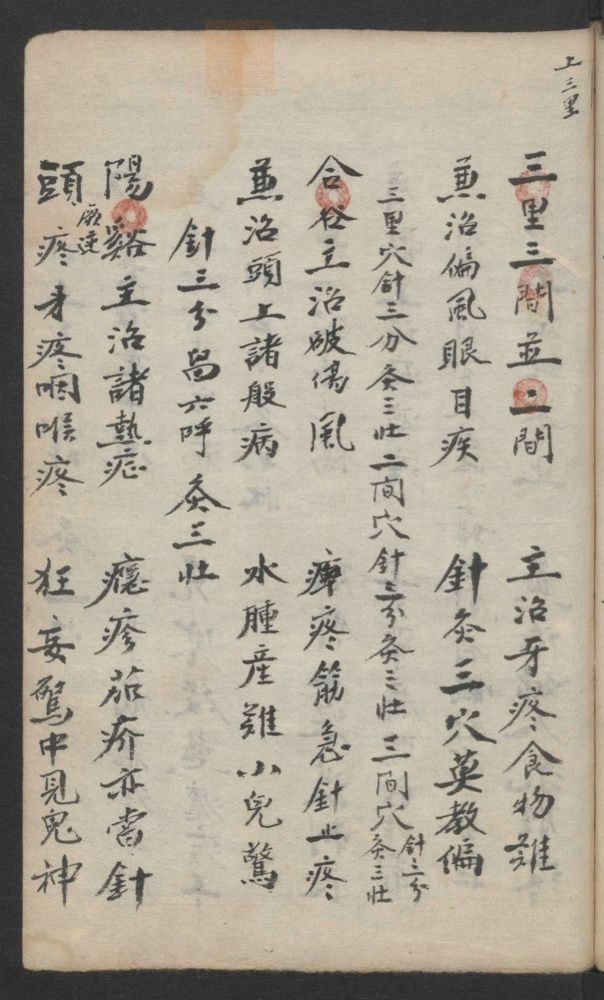 上三里
三里三間並二間 主治牙疼食物難
兼治偏風眼目疾 針灸三穴莫教偏
三里穴針三分灸三壯 二间穴針三分灸三壯 三间穴針三分灸三壯
合谷主治破傷風 痺疼筋急針止疼
兼治頭上諸般病 水腫産難小兒驚
針三分畄六呼 灸三壯
陽谿主治諸熱症 癮疹痂疥亦當針
頭疼牙疼咽喉疼 狂妄驚中見鬼神